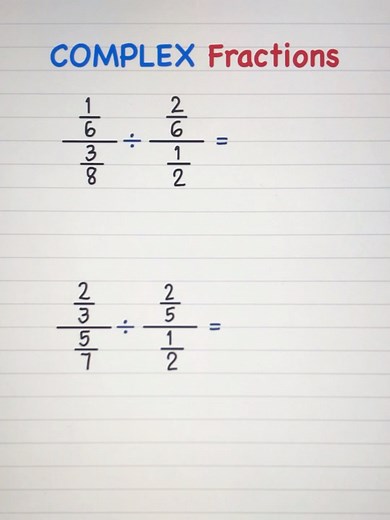 COMPLEX Fractions
1/6 / 3/8 ÷ 2/6 / 1/2 =
2/3 / 5/7 ÷ 2/5 / 1/2 =